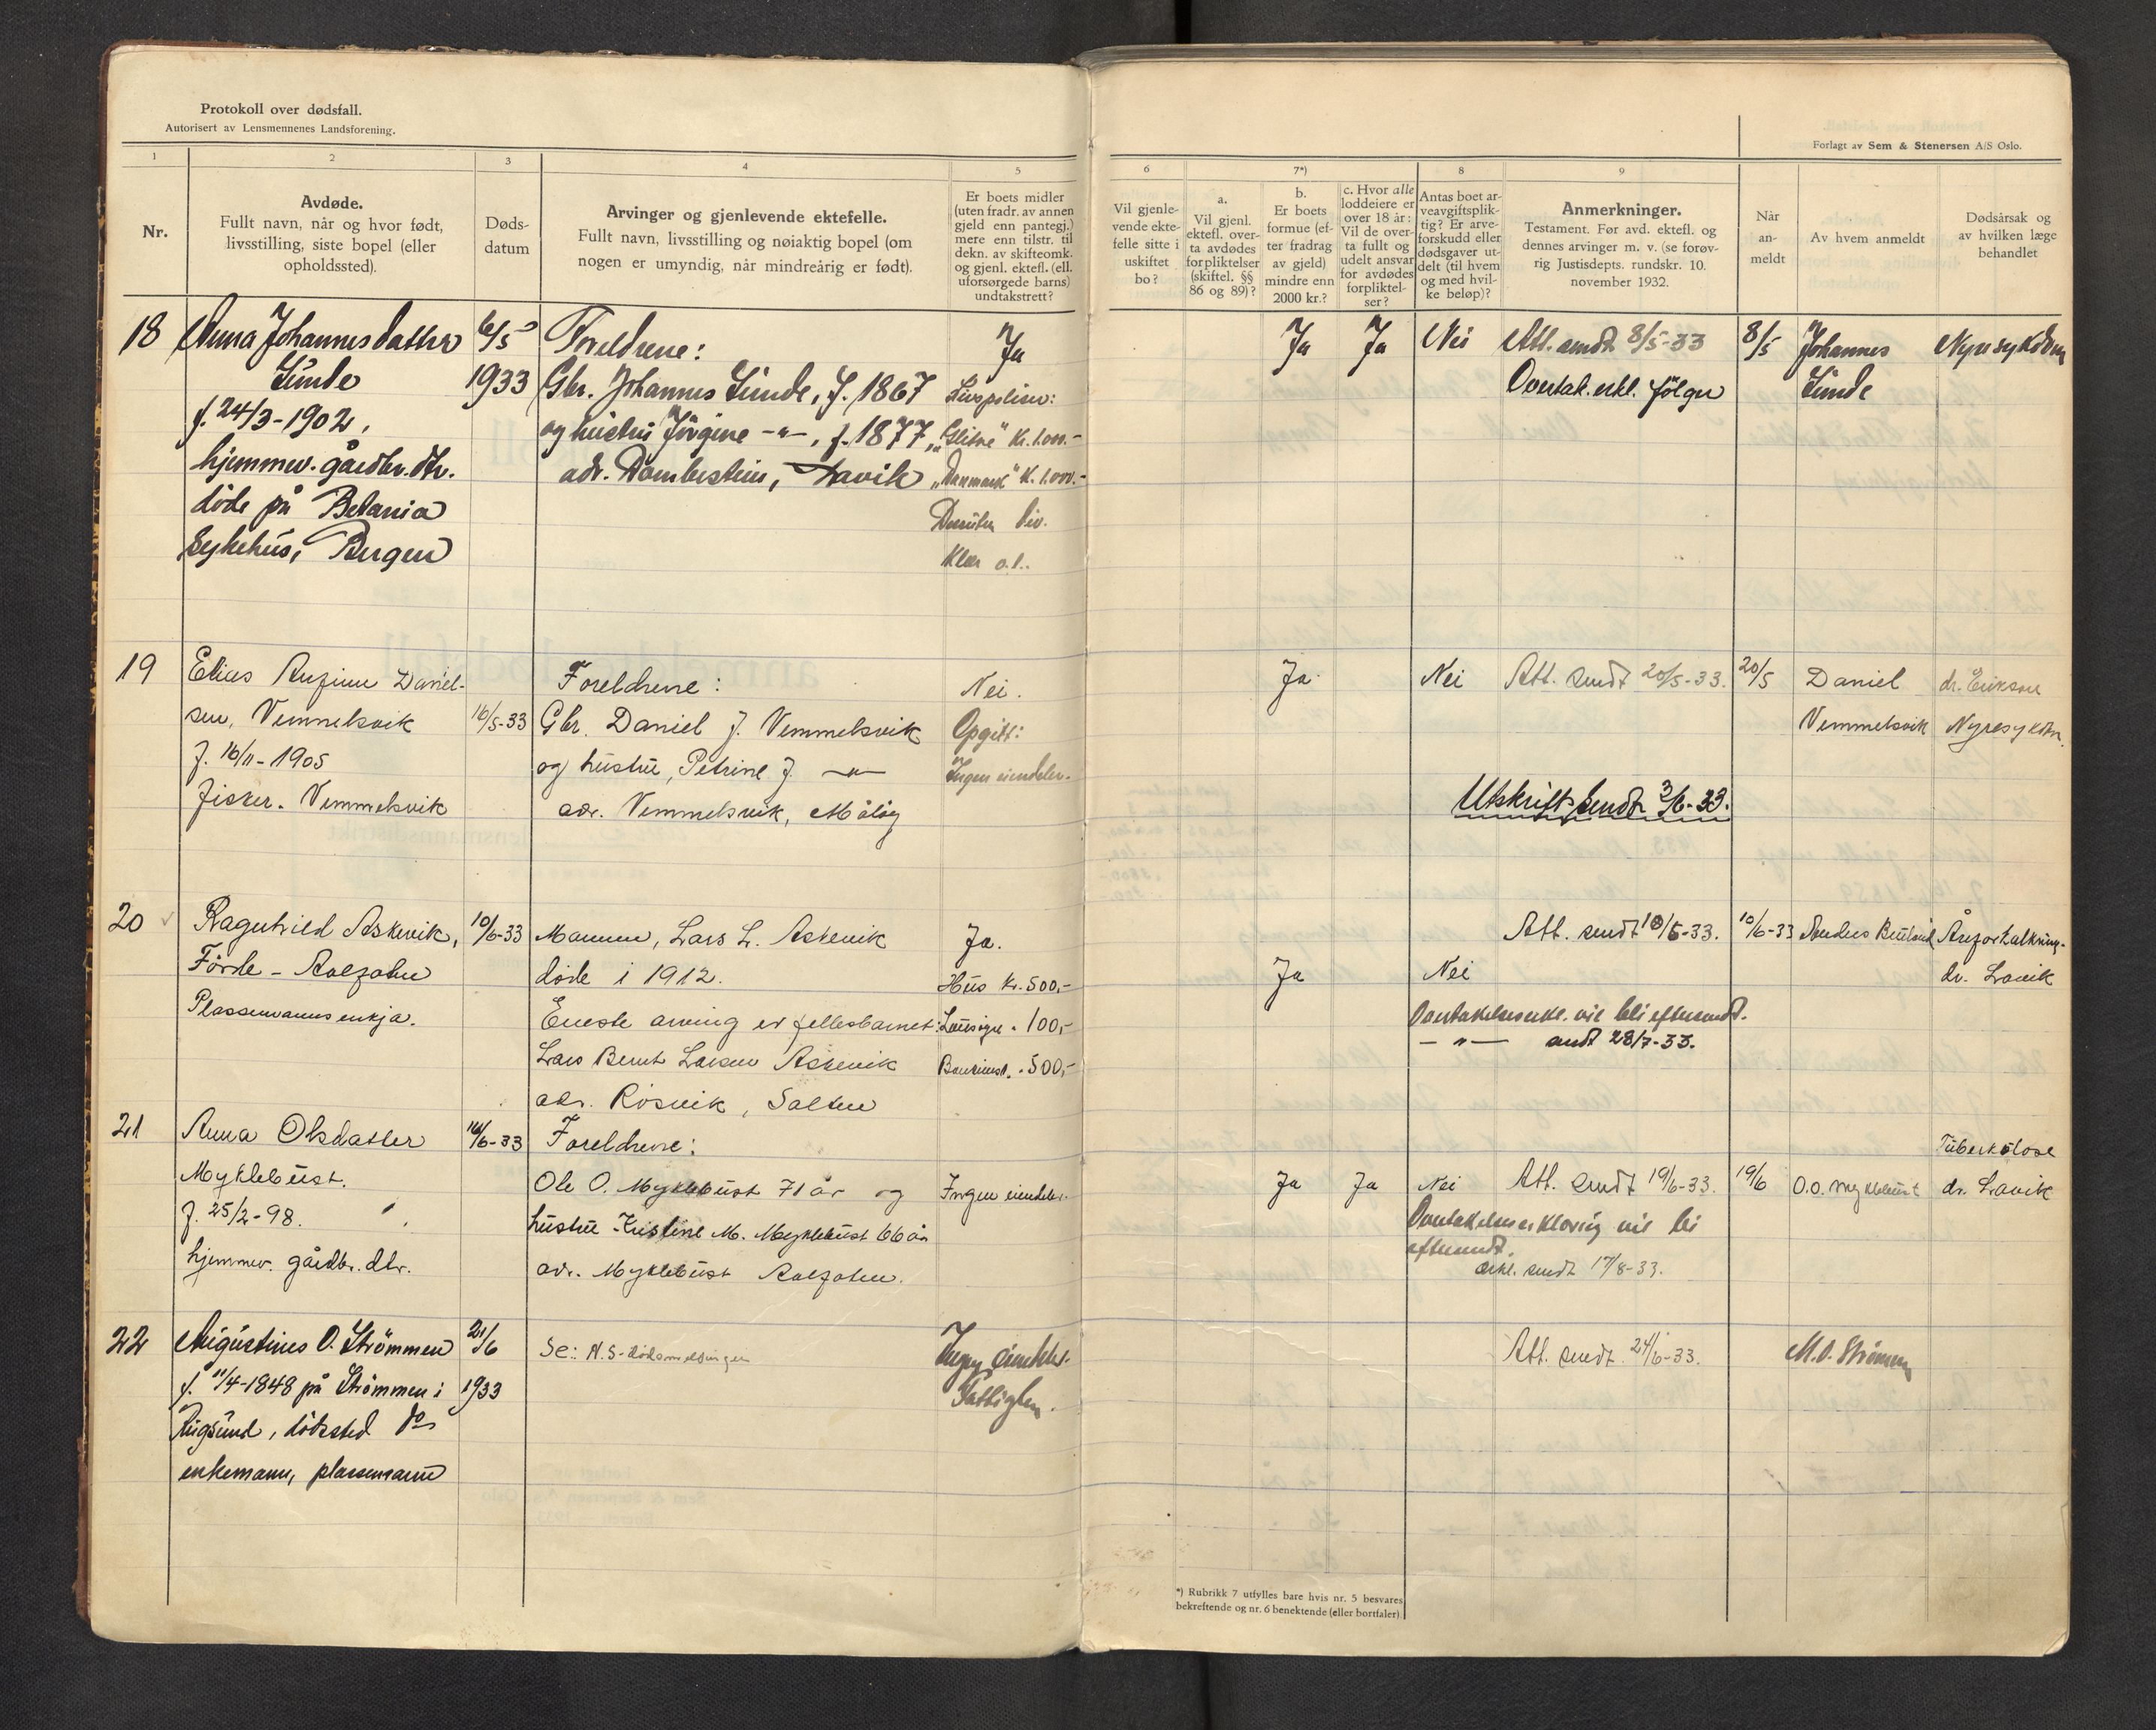 Protokoll over dødsfall.
Autorisert av Lensmennenes Landsforening.
1
2
3
4
5
Nr.
Avdøde.
Fullt navn, når og hvor født,
livsstilling, siste bopel (eller
opholdssted).
Døds-
datum
Arvinger og gjenlevende ektefelle.
Fullt navn, livsstilling og nøiaktig bopel (om
nogen er umyndig, når mindreårig er født).
Er boets midler
(uten fradr. av annen
gjeld enn pantegj.)
mere enn tilstr. til
dekn. av skifteomk.
og gjenl. ektefl. (ell.
uforsørgede barns)
undtakstrett?
18
Anna Johannesdatter
Sunde
f. 24/3-1902,
hjemmev. gårdbr. dtr.
døde på Betania
Sykehus, Bergen
6/5
1933
Foreldrene:
Gbr. Johannes Sunde, f. 1867
og hustru Jörgine -"-, f. 1877
adr. Dombestein, Davik
Ja
Livspoliser:
"Glitne" kr. 1.000.-
"Danmark" kr. 1.000.-
Desuten div.
Klær o.l.
19
Elias Anfinn Daniel-
sen, Vemmelsvik
f. 16/11-1905
fisker. Vemmelsvik
16/5-33
Foreldrene:
Gbr. Daniel J. Vemmelsvik
og hustru, Petrine J. -"-
adr. Vemmelsvik, Måløy
Nei.
Opgitt:
Ingen eiendeler.
20
Ragnhild Askevik,
Förde - Aalfoten
Plassemanns enkja.
10/6-33
Mannen, Lars L. Askevik
døde i 1912.
Eneste arving er fellesbarnet:
Lars Bernt Larsen Askevik
adr. Rösvik, Salten
Ja.
Hus kr. 500,-
Lausøyre " 100,-
Bankinsk. " 500,-
21
Anna Olsdatter
Myklebust.
f. 25/2-98.
hjemmev. gårdbr. dtr.
16/6-33
Foreldrene:
Ole O. Myklebust 71 år og
hustru Kristine M. Myklebust 66 år
adr. Myklebust Aalfoten.
Ingen eiendeler.
22
Augustinus O. Strömmen
f. 11/4-1848 på Strömmen i
Rugsund, dödssted do
enkemann, plassemann
21/6
1933
Se: N.S-dödsmeldingen
Ingen eiendeler.
Fattiglem.
Forlagt av Sem & Stenersen A/S Oslo.
6
7*)
8
9
Vil gjenle-
vende ekte-
felle sitte i
uskiftet
bo?
a.
Vil gjenl.
ektefl. over-
ta avdødes
forpliktelser
(skiftel. §§
86 og 89)?
b.
Er boets
formue (ef-
ter fradrag
av gjeld)
mindre enn
2000 kr.?
c. Hvor alle
loddeiere er
over 18 år:
Vil de over-
ta fullt og
udelt ansvar
for avdødes
forpliktel-
ser?
Antas boet ar-
veavgiftsplik-
tig? Er arve-
forskudd eller
dødsgaver ut-
delt (til hvem
og med hvil-
ke beløp)?
Anmerkninger.
Testament. Før avd. ektefl. og
dennes arvinger m. v. (se forøv-
rig Justisdepts. rundskr. 10.
november 1932.
Når
an-
meldt
Av hvem anmeldt
Dødsårsak og
av hvilken læge
behandlet
Ja
Ja
Nei
Att. sendt 8/5-33
Overtak. erkl. følger
8/5
Johannes
Sunde
Nyresykdom
Ja.
Nei
Att. sendt 20/5-33.
20/5
Daniel
Vemmelsvik
dr. Eriksen
Nyresykdm.
Utskrift sendt 3/6-33.
Att. sendt 10/6-33.
10/6-33
Ja
Nei
Overtakelseserkl. vil bli eftersendt.
-"- sendt 28/7-33.
Åreforkalkning.
dr. Lavik
Ja
Ja
Nei
Att. sendt 19/6-33.
Overtakelseserklæring vil bli
eftersendt.
Erkl. sendt 17/8-33.
19/6
O.O. Myklebust
Tuberkulose
dr. Lavik
Att. sendt. 24/6-33.
M.O. Strömmen
*) Rubrikk 7 utfylles bare hvis nr. 5 besvares
bekreftende og nr. 6 benektende (eller bortfaler).